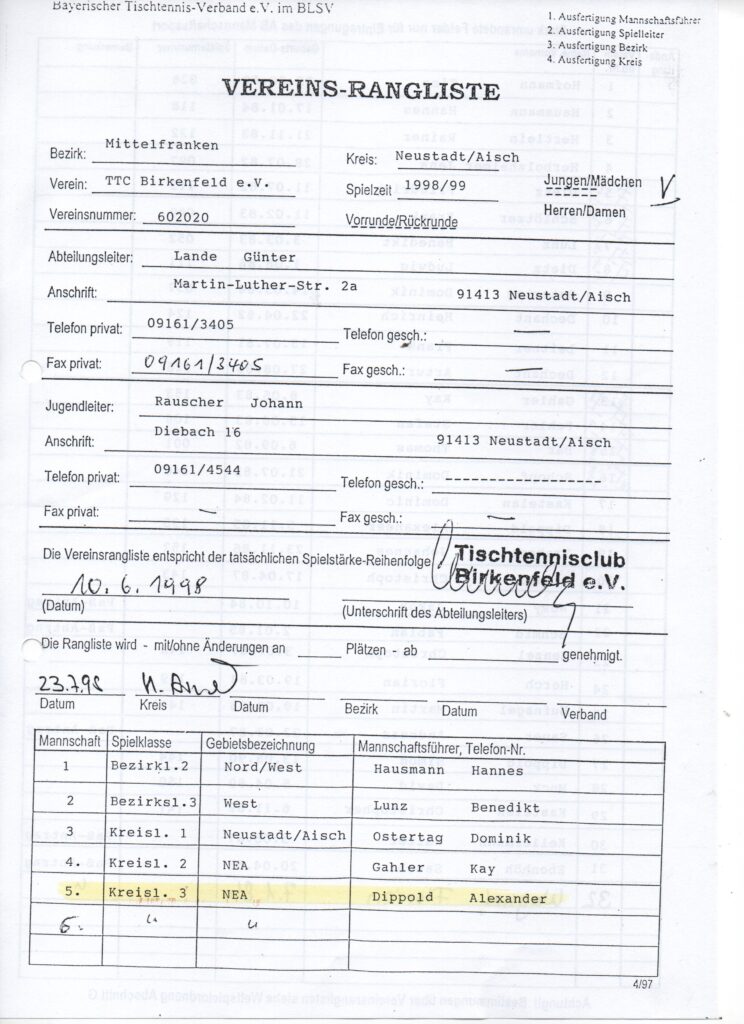 Bayerischer Tischtennis-Verband e.V. im BLSV
1. Ausfertigung Mannschaftsführer
2. Ausfertigung Spielleiter
3. Ausfertigung Bezirk
4. Ausfertigung Kreis
VEREINS-RANGLISTE
Bezirk: Mittelfranken Kreis: Neustadt/Aisch
Verein: TTC Birkenfeld e.V. Spielzeit 1998/99 Jungen/Mädchen V
Vereinsnummer: 602020 Vorrunde/Rückrunde Herren/Damen
Abteilungsleiter: Lande Günter
Anschrift: Martin-Luther-Str. 2a 91413 Neustadt/Aisch
Telefon privat: 09161/3405 Telefon gesch.: —
Fax privat: 09161/3405 Fax gesch.: —
Jugendleiter: Rauscher Johann
Anschrift: Diebach 16 91413 Neustadt/Aisch
Telefon privat: 09161/4544 Telefon gesch.: ----------------
Fax privat: — Fax gesch.: —
Die Vereinsrangliste entspricht der tatsächlichen Spielstärke-Reihenfolge
Tischtennisclub
Birkenfeld e.V.
10.6.1998
(Datum) (Unterschrift des Abteilungsleiters)
Die Rangliste wird - mit/ohne Änderungen an Plätzen - ab genehmigt.
23.7.98
Datum Kreis Datum Bezirk Datum Verband
Mannschaft Spielklasse Gebietsbezeichnung Mannschaftsführer, Telefon-Nr.
1 Bezirkl.2 Nord/West Hausmann Hannes
2 Bezirksl.3 West Lunz Benedikt
3 Kreisl. 1 Neustadt/Aisch Ostertag Dominik
4. Kreisl. 2 NEA Gahler Kay
5. Kreisl. 3 NEA Dippold Alexander
6. " "
4/97